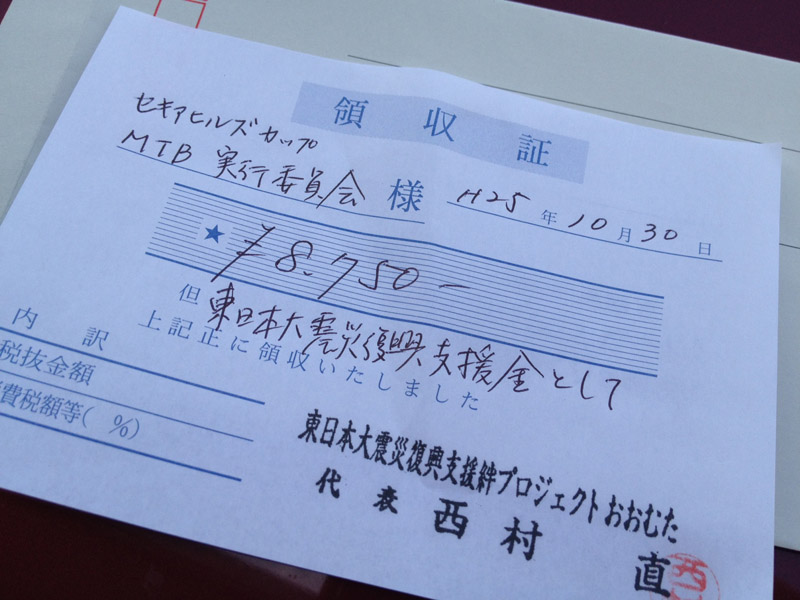 領収証
セキアヒルズカップ
MTB 実行委員会 様
H25年10月30日
★ ¥8.750-
但 東日本大震災復興支援金として
上記正に領収いたしました
内訳
税抜金額
費税額等( %)
東日本大震災復興支援絆プロジェクトおおむた
代表 西村 直